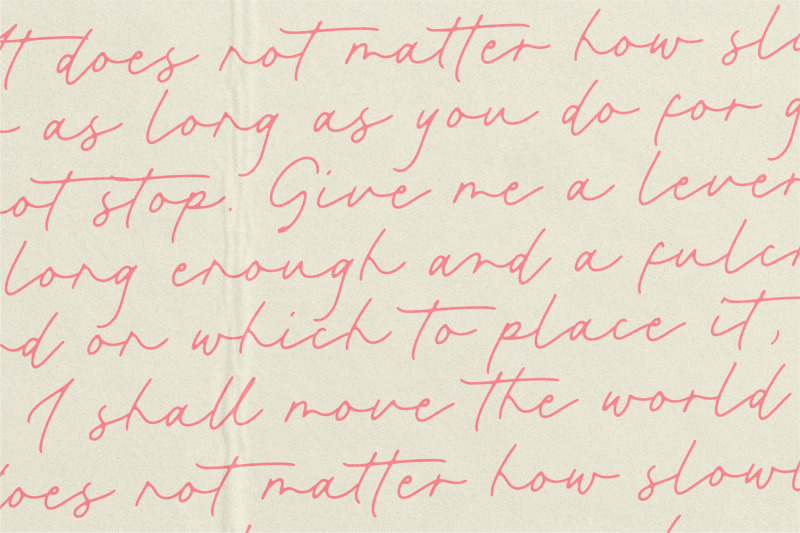 It does not matter how slo
as long as you do for g
ot stop. Give me a lever
long enough and a fulcr
d on which to place it,
I shall move the world
oes not matter how slowl